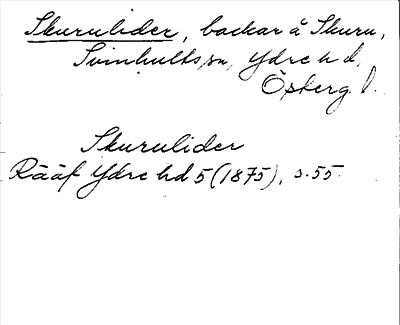 Skurulider, backar å Skuru,
Svinhults sn, Ydre hd,
Östergl.
Skurulider
Rääf Ydre hd 5 (1875), s. 55.